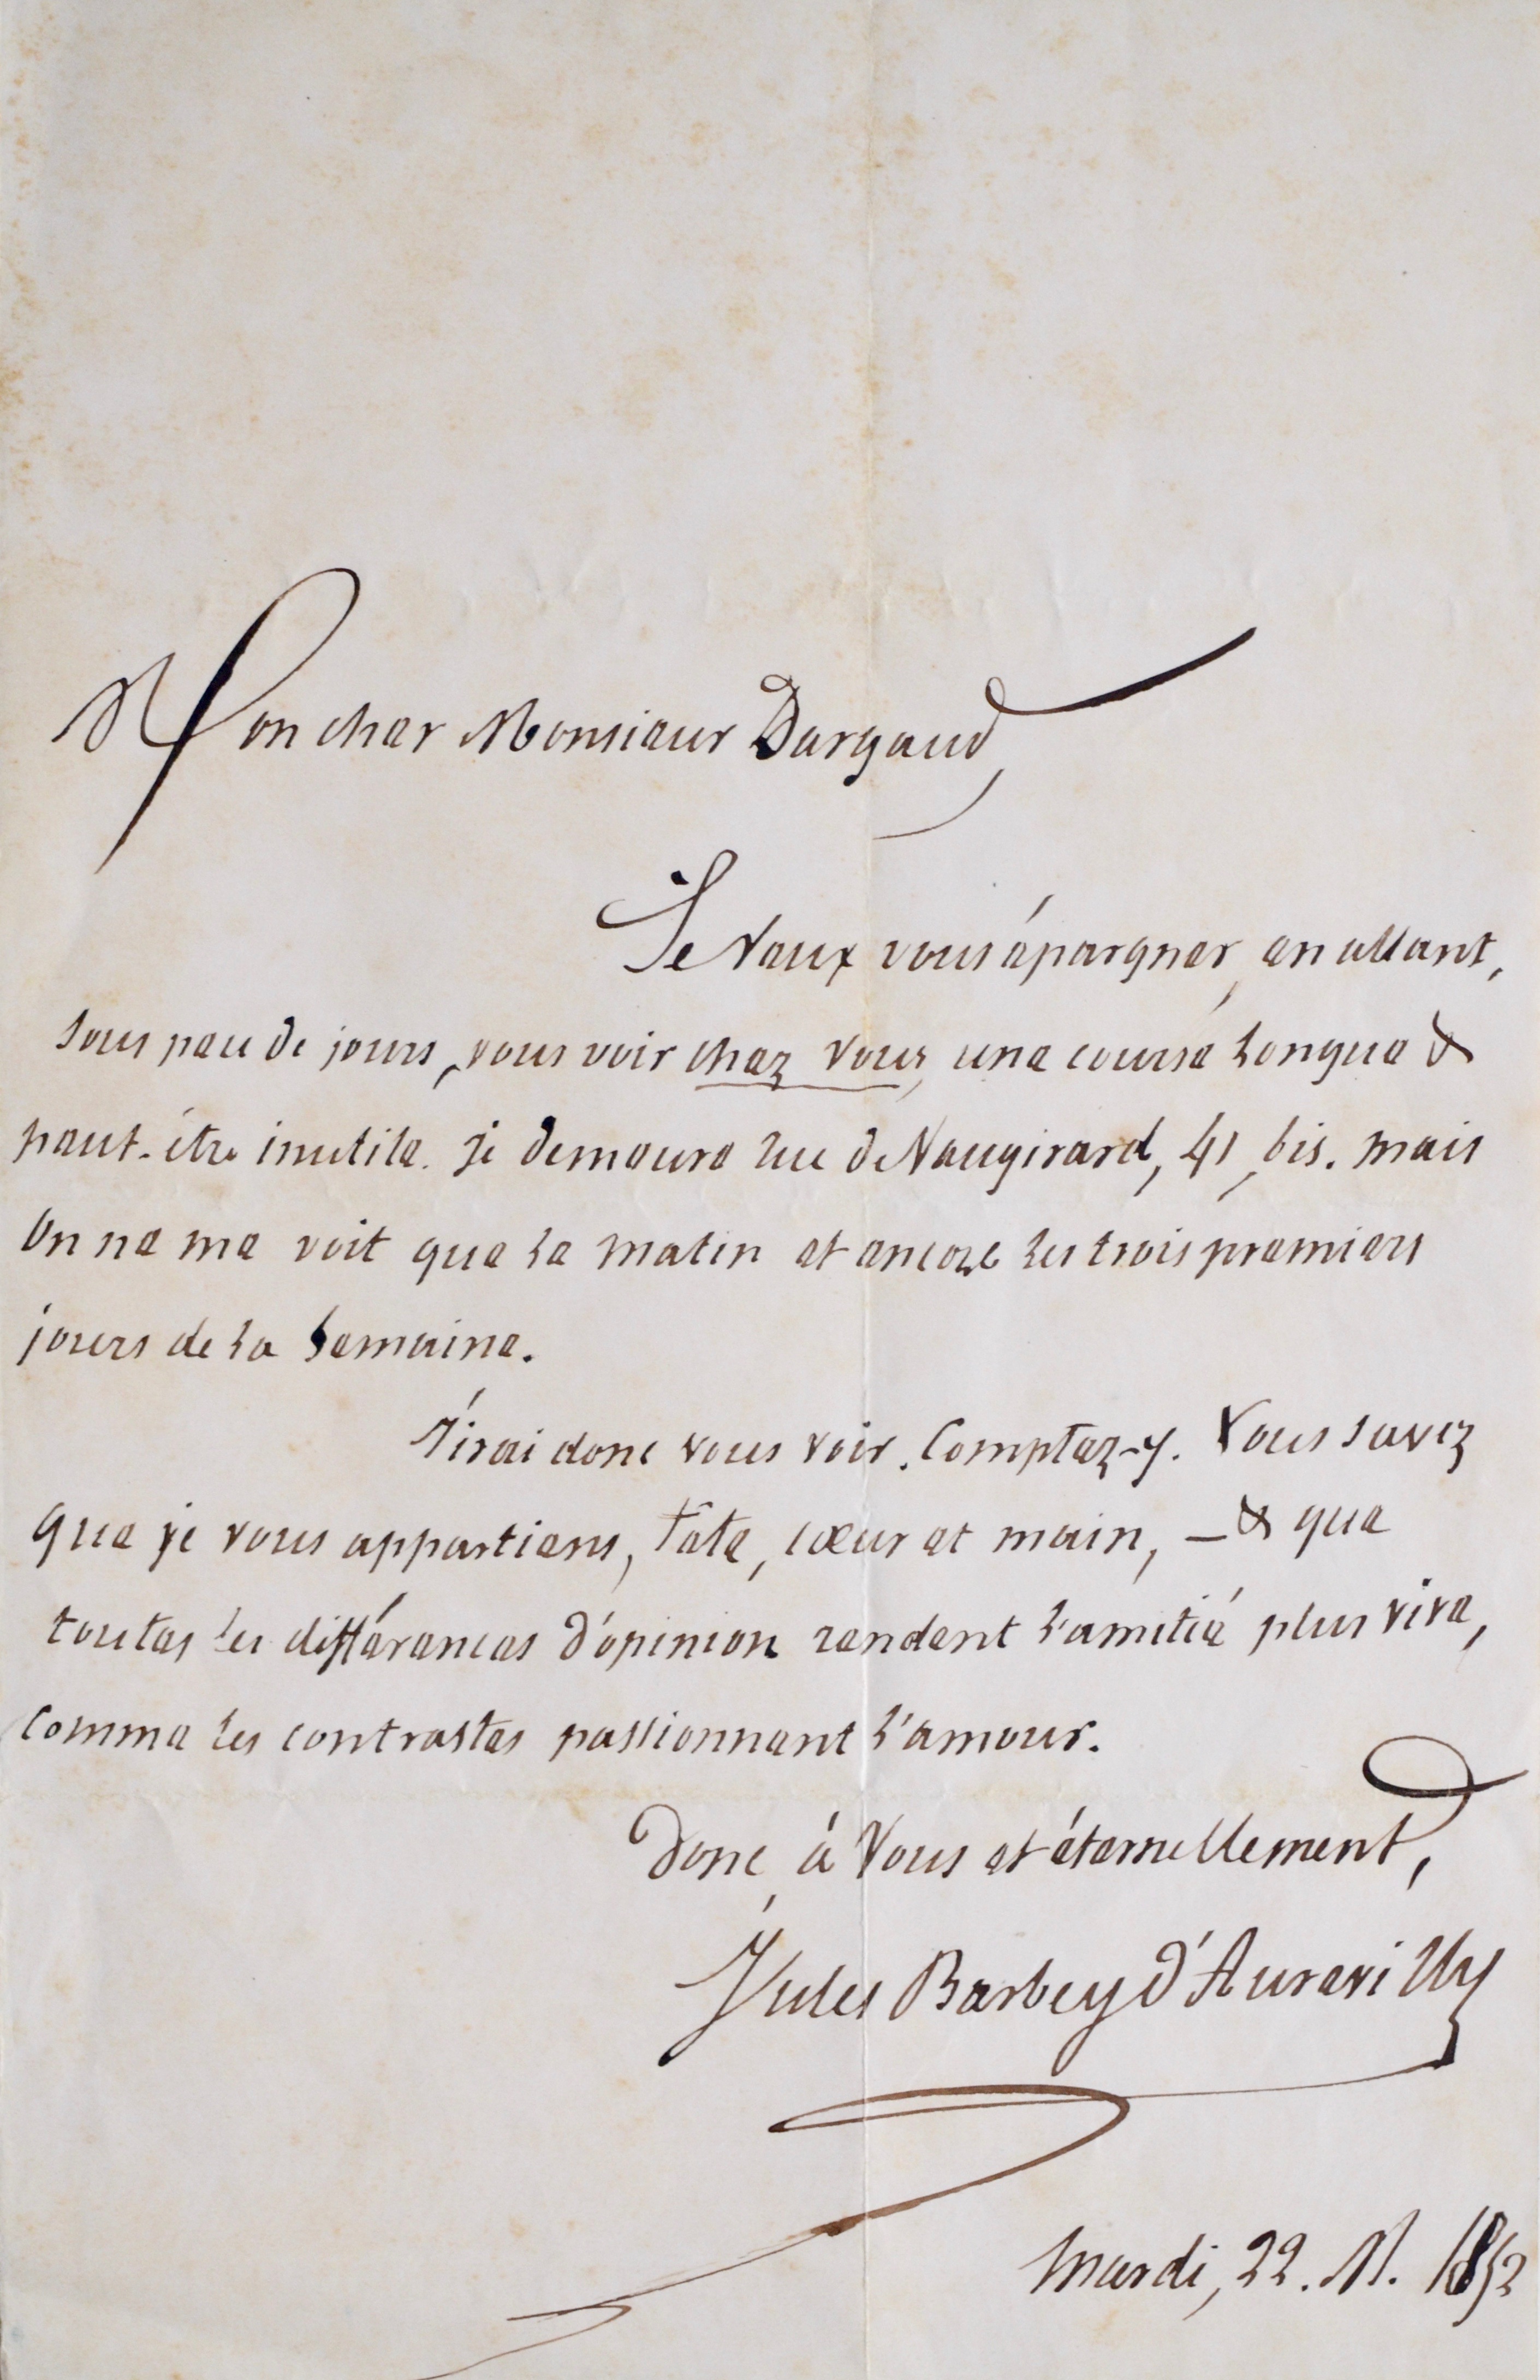 Mon cher Monsieur Dargaud,
Je veux vous épargner, en allant,
sous peu de jours, vous voir chez vous, une course longue &
peut-être inutile. Je demeure rue de Vaugirard, 41, bis. Mais
on ne me voit que le matin et encore les trois premiers
jours de la semaine.
J'irai donc vous voir. Comptez-y. Vous savez
que je vous appartiens, tête, cœur et main, – & que
toutes les différences d'opinion rendent l'amitié plus vive,
comme les contrastes passionnent l'amour.
Donc, à Vous et éternellement,
Jules Barbey d'Aurevilly
Mardi, 22. M. 1852